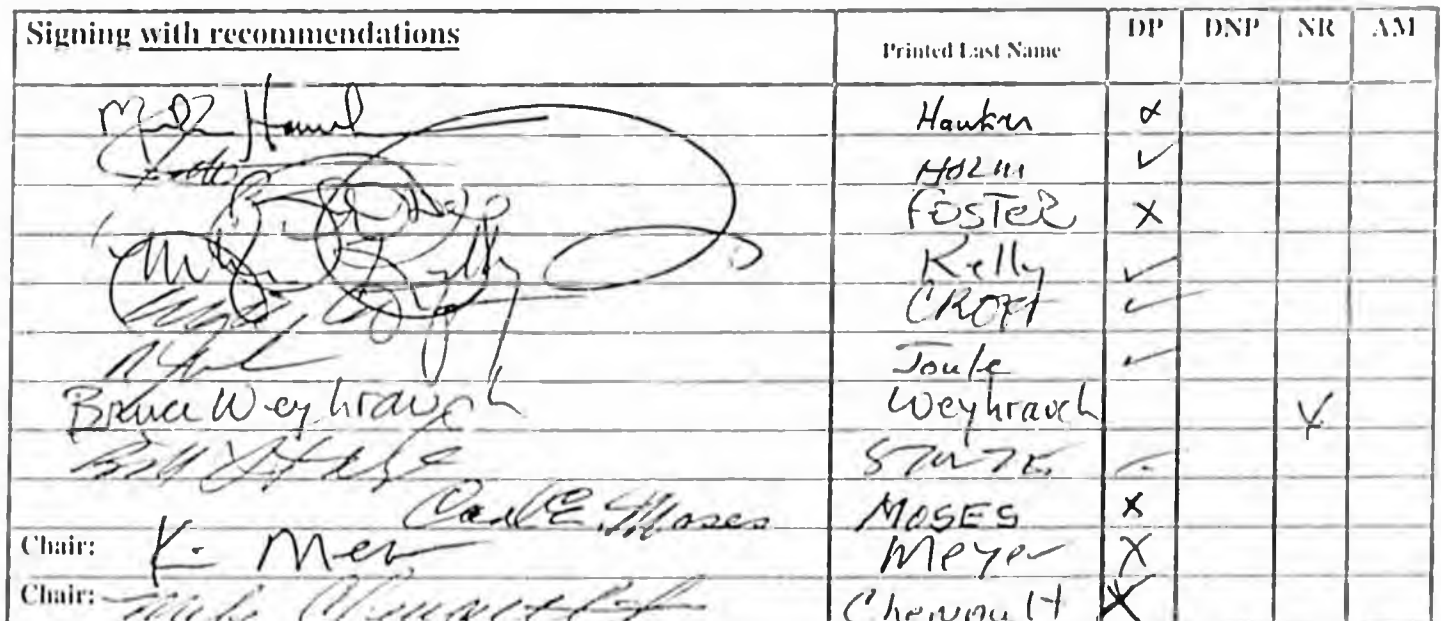 Signing with recommendations Printed Last Name DP DNP NR AM
Hawker X
Holm ✓
FOSTER X
Kelly ✓
CROFT ✓
Joule ✓
Bruce Weyhrauch Weyhrauch X
Bill Stoltze STOLTZE
Carl E. Moses MOSES X
Chair: K. Meyer Meyer X
Chair: Mike Chenault Chenault X